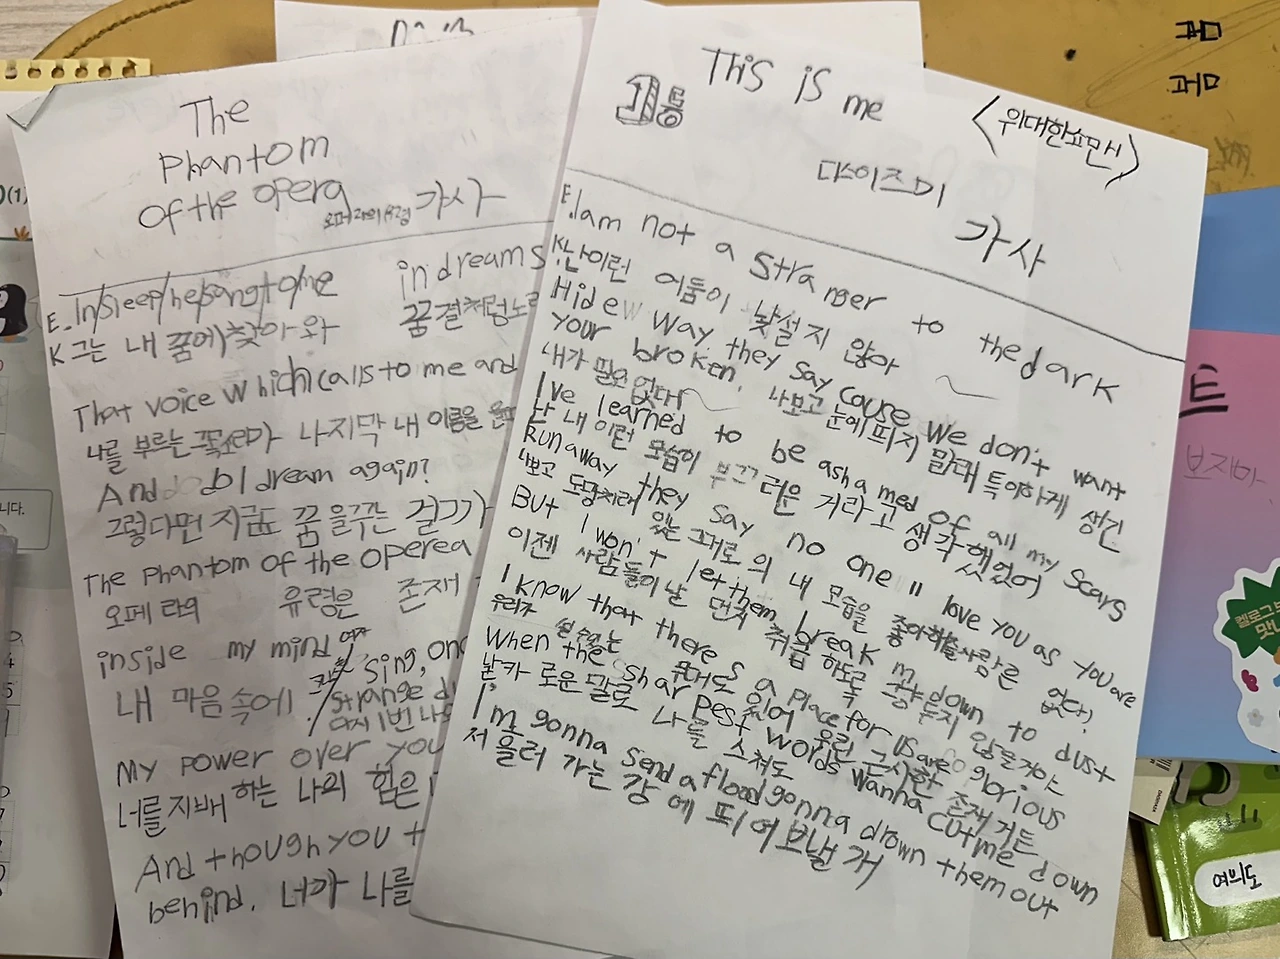 The
Phantom
of the opera
오페라의 유령 가사
E. In/sleep/he/sang/to/me in dreams
K 그는 내 꿈에 찾아와 꿈결처럼 노래
That voice which calls to me and
나를 부르는 목소리가 나지막 내 이름을
And do I dream again?
그렇다면 지금도 꿈을 꾸는 걸까
The phantom of the operea
오페라의 유령은 존재
inside my mind
sing, once
내 마음속에
strange d
다시 1번 나
My power over you
너를 지배하는 나의 힘은
And though you t
behind. 너가 나를
This is me
<위대한쇼만시>
디스이즈미
가사
E. I am not a stranger to the dark
K. 난 이런 어둠이 낯설지 않아
Hide w way they say cause we don't want
your broken. 나보고 눈에 띄지 말래 특이하게 생긴
내가 필요 없대
I've learned to be ashamed of all my scars
난 내 이런 모습이 부끄러운 거라고 생각했었어
Run away they say no one "love you as you are
나보고 도망치래 있는 그대로의 내 모습을 좋아해줄 사람은 없대
But I won't let them break m down to dust
이젠 사람들이 날 먼지 취급 하도록 놔두지 않을거야
I know that there s a place for us are glorious
우리가 쉴 수 있는 우린 근사한 존재거든
When the sharpest words wanna cut me down
날카로운 말로 나를 스쳐도
I'm gonna send a flood gonna drown them out
저 흘러가는 강에 띄어보낼게
켈로그
맛나
여의도